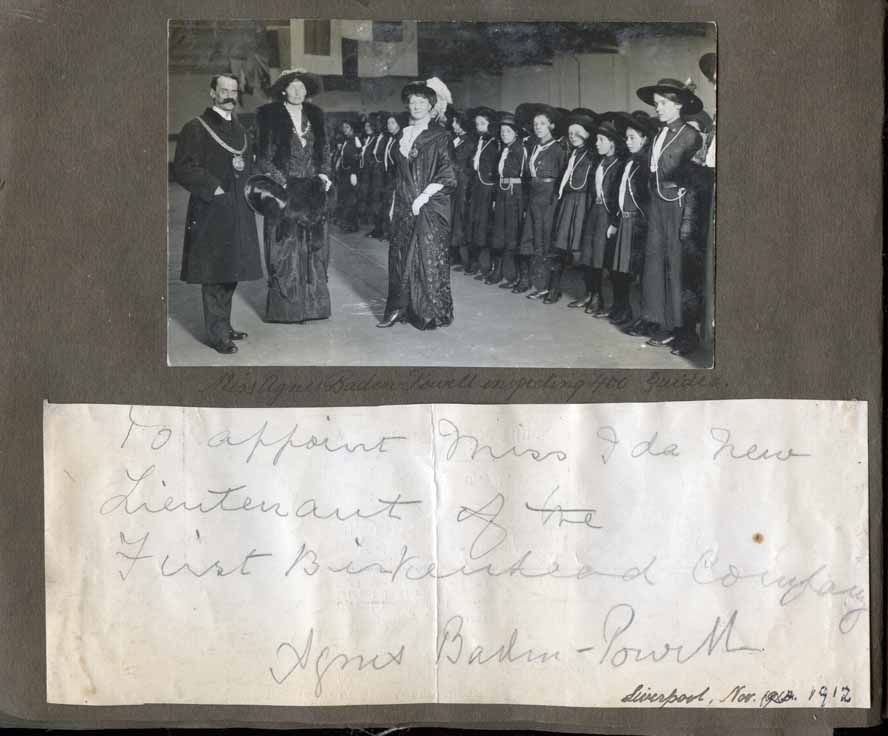 Miss Agnes Baden-Powell inspecting 400 Guides.
To appoint Miss Ida New
Lieutenant of the
First Birkenhead Company
Agnes Baden-Powell
Liverpool, Nov. 1912